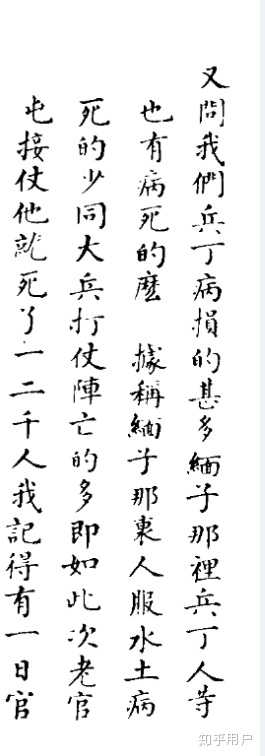 又問我們兵丁病損的甚多緬子那裡兵丁人等
也有病死的麽 據稱緬子那裏人服水土病
死的少同大兵打仗陣亡的多即如此次老官
屯接仗他就死了一二千人我記得有一日官
知乎用户